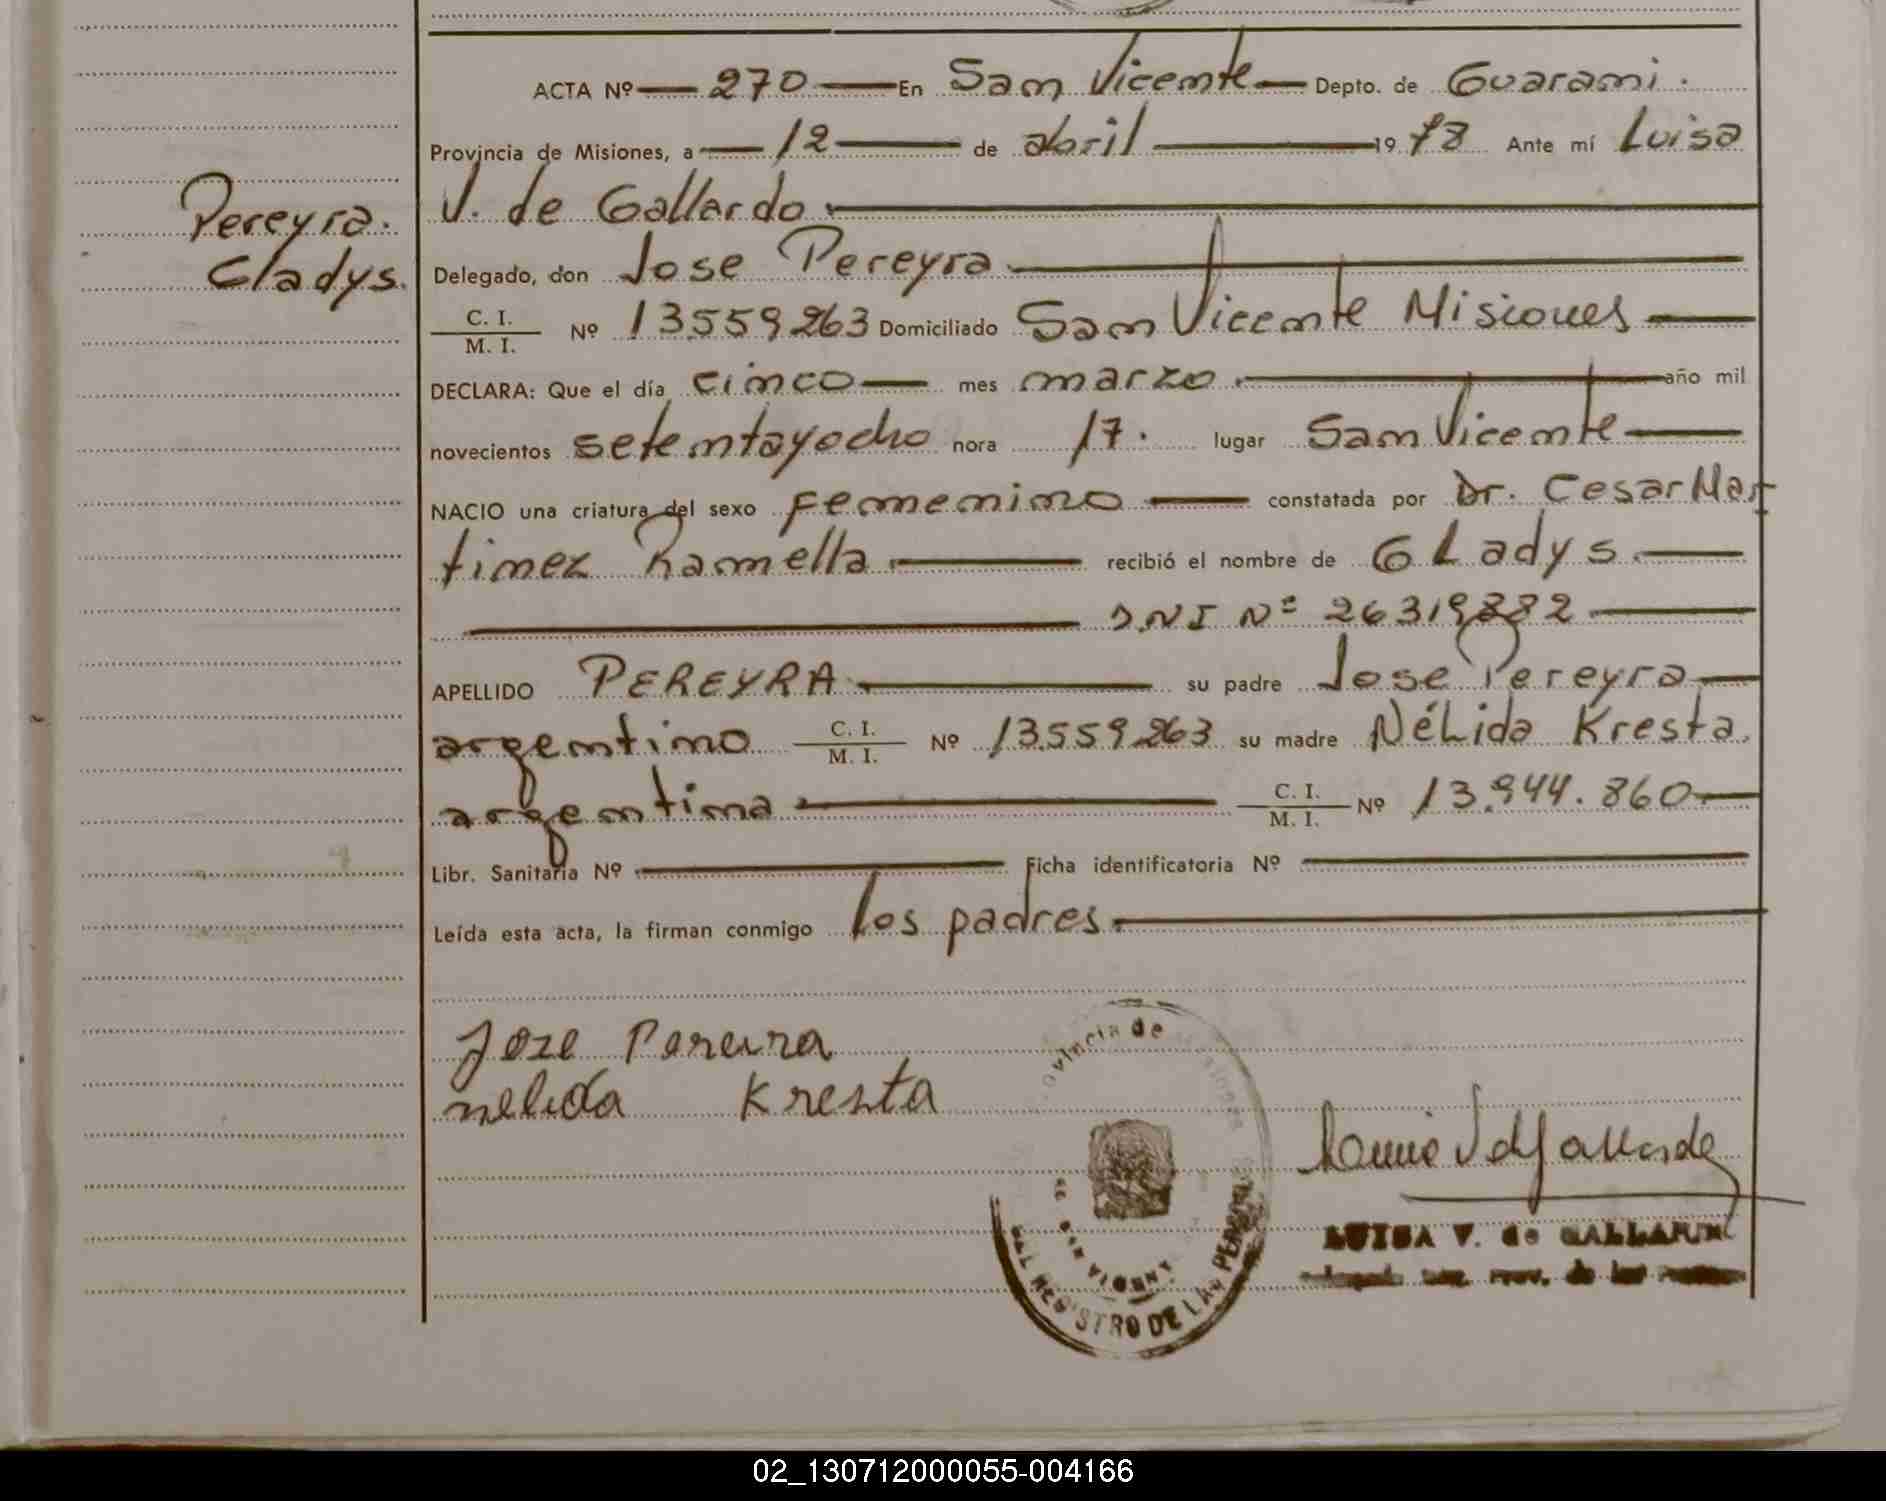 ACTA Nº 270 En San Vicente Depto. de Guarani.
Provincia de Misiones, a 12 de abril 1978 Ante mí Luisa
V. de Gallardo
Pereyra.
Gladys.
Delegado, don Jose Pereyra
C. I. / M. I. Nº 13.559.263 Domiciliado San Vicente Misiones
DECLARA: Que el día cinco mes marzo año mil
novecientos setentayocho hora 17. lugar San Vicente
NACIO una criatura del sexo femenino constatada por Dr. Cesar Mar
tinez Ramella recibió el nombre de GLadys
D.N.I Nº 26319882
APELLIDO PEREYRA su padre Jose Pereyra
argentino C. I. / M. I. Nº 13.559.263 su madre NéLida Kresta.
argentina C. I. / M. I. Nº 13.944.860
Libr. Sanitaria Nº Ficha identificatoria Nº
Leída esta acta, la firman conmigo los padres.
Joze Pereira
nelida Kresta
Provincia de
REGISTRO DE LAS PERSONAS
LUISA V. de GALLARDO
02_130712000055-004166